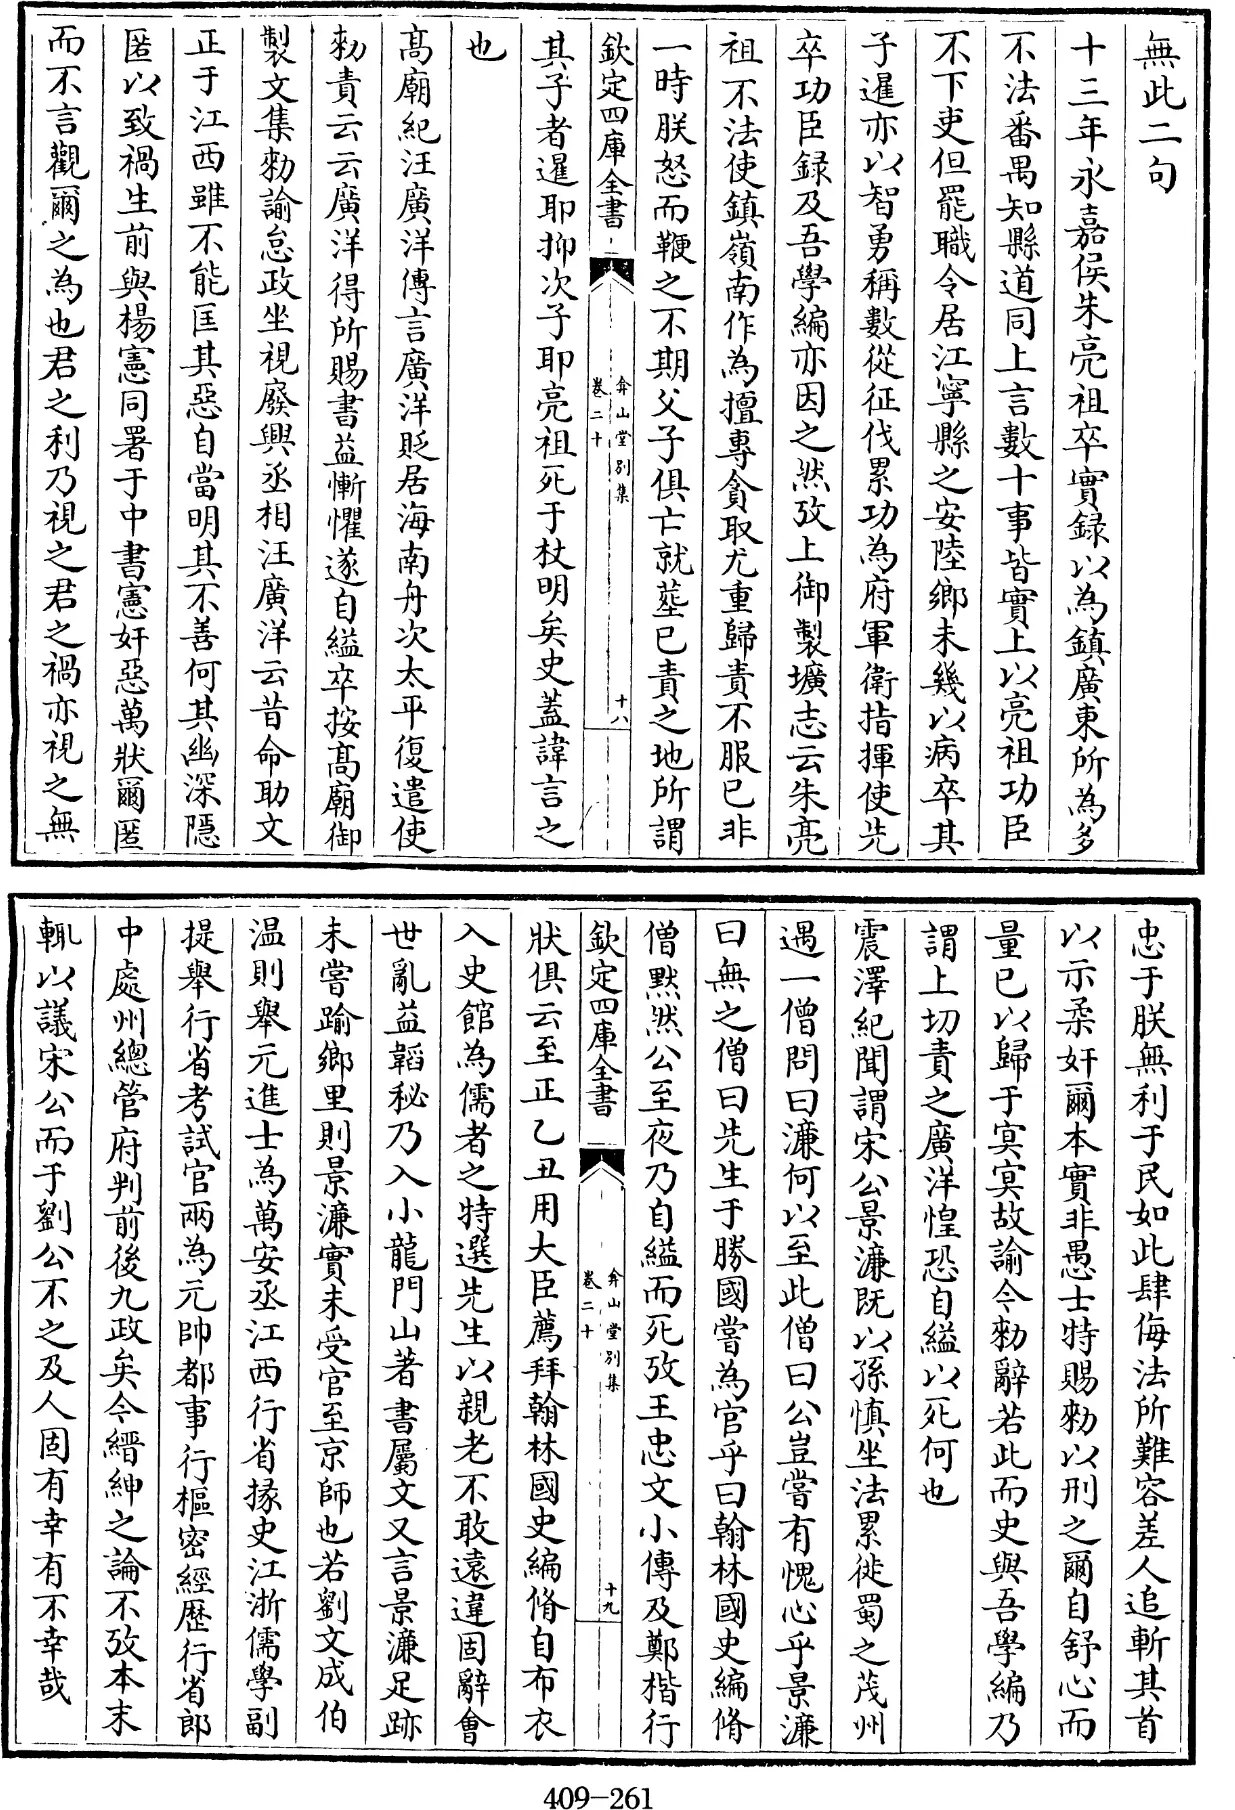 無此二句
十三年永嘉侯朱亮祖卒實録以為鎮廣東所為多
不法番禺知縣道同上言數十事皆實上以亮祖功臣
不下吏但罷職令居江寧縣之安陸鄉未幾以病卒其
子暹亦以智勇稱數從征伐累功為府軍衛指揮使先
卒功臣録及吾學編亦因之然攷上御製壙志云朱亮
祖不法使鎮嶺南作為擅專貪取尤重歸責不服已非
一時朕怒而鞭之不期父子俱亡就塟已責之地所謂
欽定四庫全書
弇山堂别集
卷二十
十八
其子者暹耶抑次子耶亮祖死于杖明矣史蓋諱言之
也
髙廟紀汪廣洋傳言廣洋貶居海南舟次太平復遣使
勑責云云廣洋得所賜書益慚懼遂自縊卒按髙廟御
製文集勑諭怠政坐視廢興丞相汪廣洋云昔命助文
正于江西雖不能匡其惡自當明其不善何其幽深隱
匿以致禍生前與楊憲同署于中書憲奸惡萬狀爾匿
而不言觀爾之為也君之利乃視之君之禍亦視之無
忠于朕無利于民如此肆侮法所難容差人追斬其首
以示柔奸爾本實非愚士特賜勑以刑之爾自舒心而
量已以歸于冥冥故諭令勑辭若此而史與吾學編乃
謂上切責之廣洋惶恐自縊以死何也
震澤紀聞謂宋公景濂既以孫慎坐法累徙蜀之茂州
遇一僧問曰濂何以至此僧曰公豈嘗有愧心乎景濂
曰無之僧曰先生于勝國嘗為官乎曰翰林國史編脩
僧黙然公至夜乃自縊而死攷王忠文小傳及鄭楷行
欽定四庫全書
弇山堂别集
卷二十
十九
狀俱云至正乙丑用大臣薦拜翰林國史編脩自布衣
入史館為儒者之特選先生以親老不敢遠違固辭會
世亂益韜秘乃入小龍門山著書屬文又言景濂足跡
未嘗踰鄉里則景濂實未受官至京師也若劉文成伯
温則舉元進士為萬安丞江西行省掾史江浙儒學副
提舉行省考試官兩為元帥都事行樞密經歴行省郎
中處州總管府判前後九政矣今縉紳之論不攷本末
輒以議宋公而于劉公不之及人固有幸有不幸哉
409-261